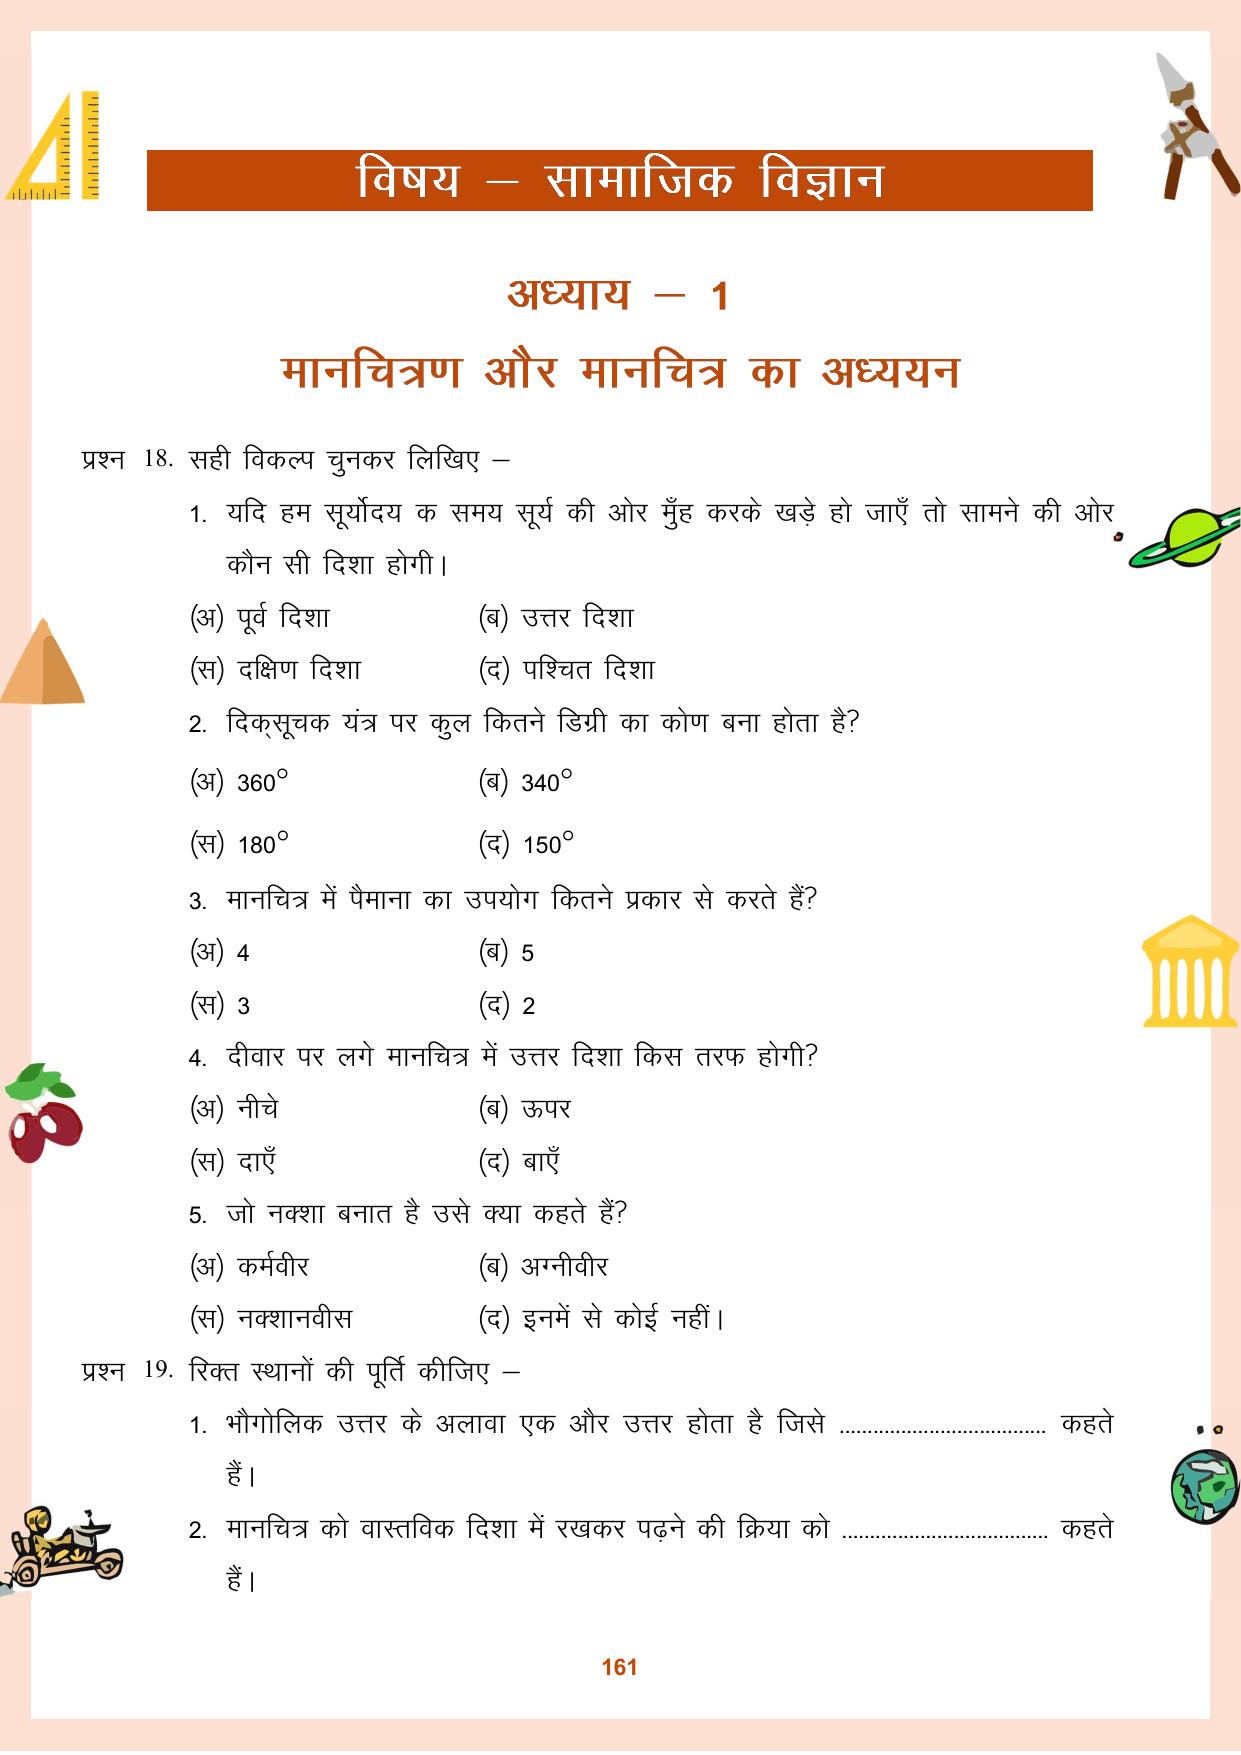 विषय – सामाजिक विज्ञान
अध्याय – 1
मानचित्रण और मानचित्र का अध्ययन
प्रश्न 18. सही विकल्प चुनकर लिखिए –
1. यदि हम सूर्योदय क समय सूर्य की ओर मुँह करके खड़े हो जाएँ तो सामने की ओर
कौन सी दिशा होगी।
(अ) पूर्व दिशा (ब) उत्तर दिशा
(स) दक्षिण दिशा (द) पश्चित दिशा
2. दिक्सूचक यंत्र पर कुल कितने डिग्री का कोण बना होता है?
(अ) 360° (ब) 340°
(स) 180° (द) 150°
3. मानचित्र में पैमाना का उपयोग कितने प्रकार से करते हैं?
(अ) 4 (ब) 5
(स) 3 (द) 2
4. दीवार पर लगे मानचित्र में उत्तर दिशा किस तरफ होगी?
(अ) नीचे (ब) ऊपर
(स) दाएँ (द) बाएँ
5. जो नक्शा बनात है उसे क्या कहते हैं?
(अ) कर्मवीर (ब) अग्नीवीर
(स) नक्शानवीस (द) इनमें से कोई नहीं।
प्रश्न 19. रिक्त स्थानों की पूर्ति कीजिए –
1. भौगोलिक उत्तर के अलावा एक और उत्तर होता है जिसे ..................................... कहते
हैं।
2. मानचित्र को वास्तविक दिशा में रखकर पढ़ने की क्रिया को ..................................... कहते
हैं।
161